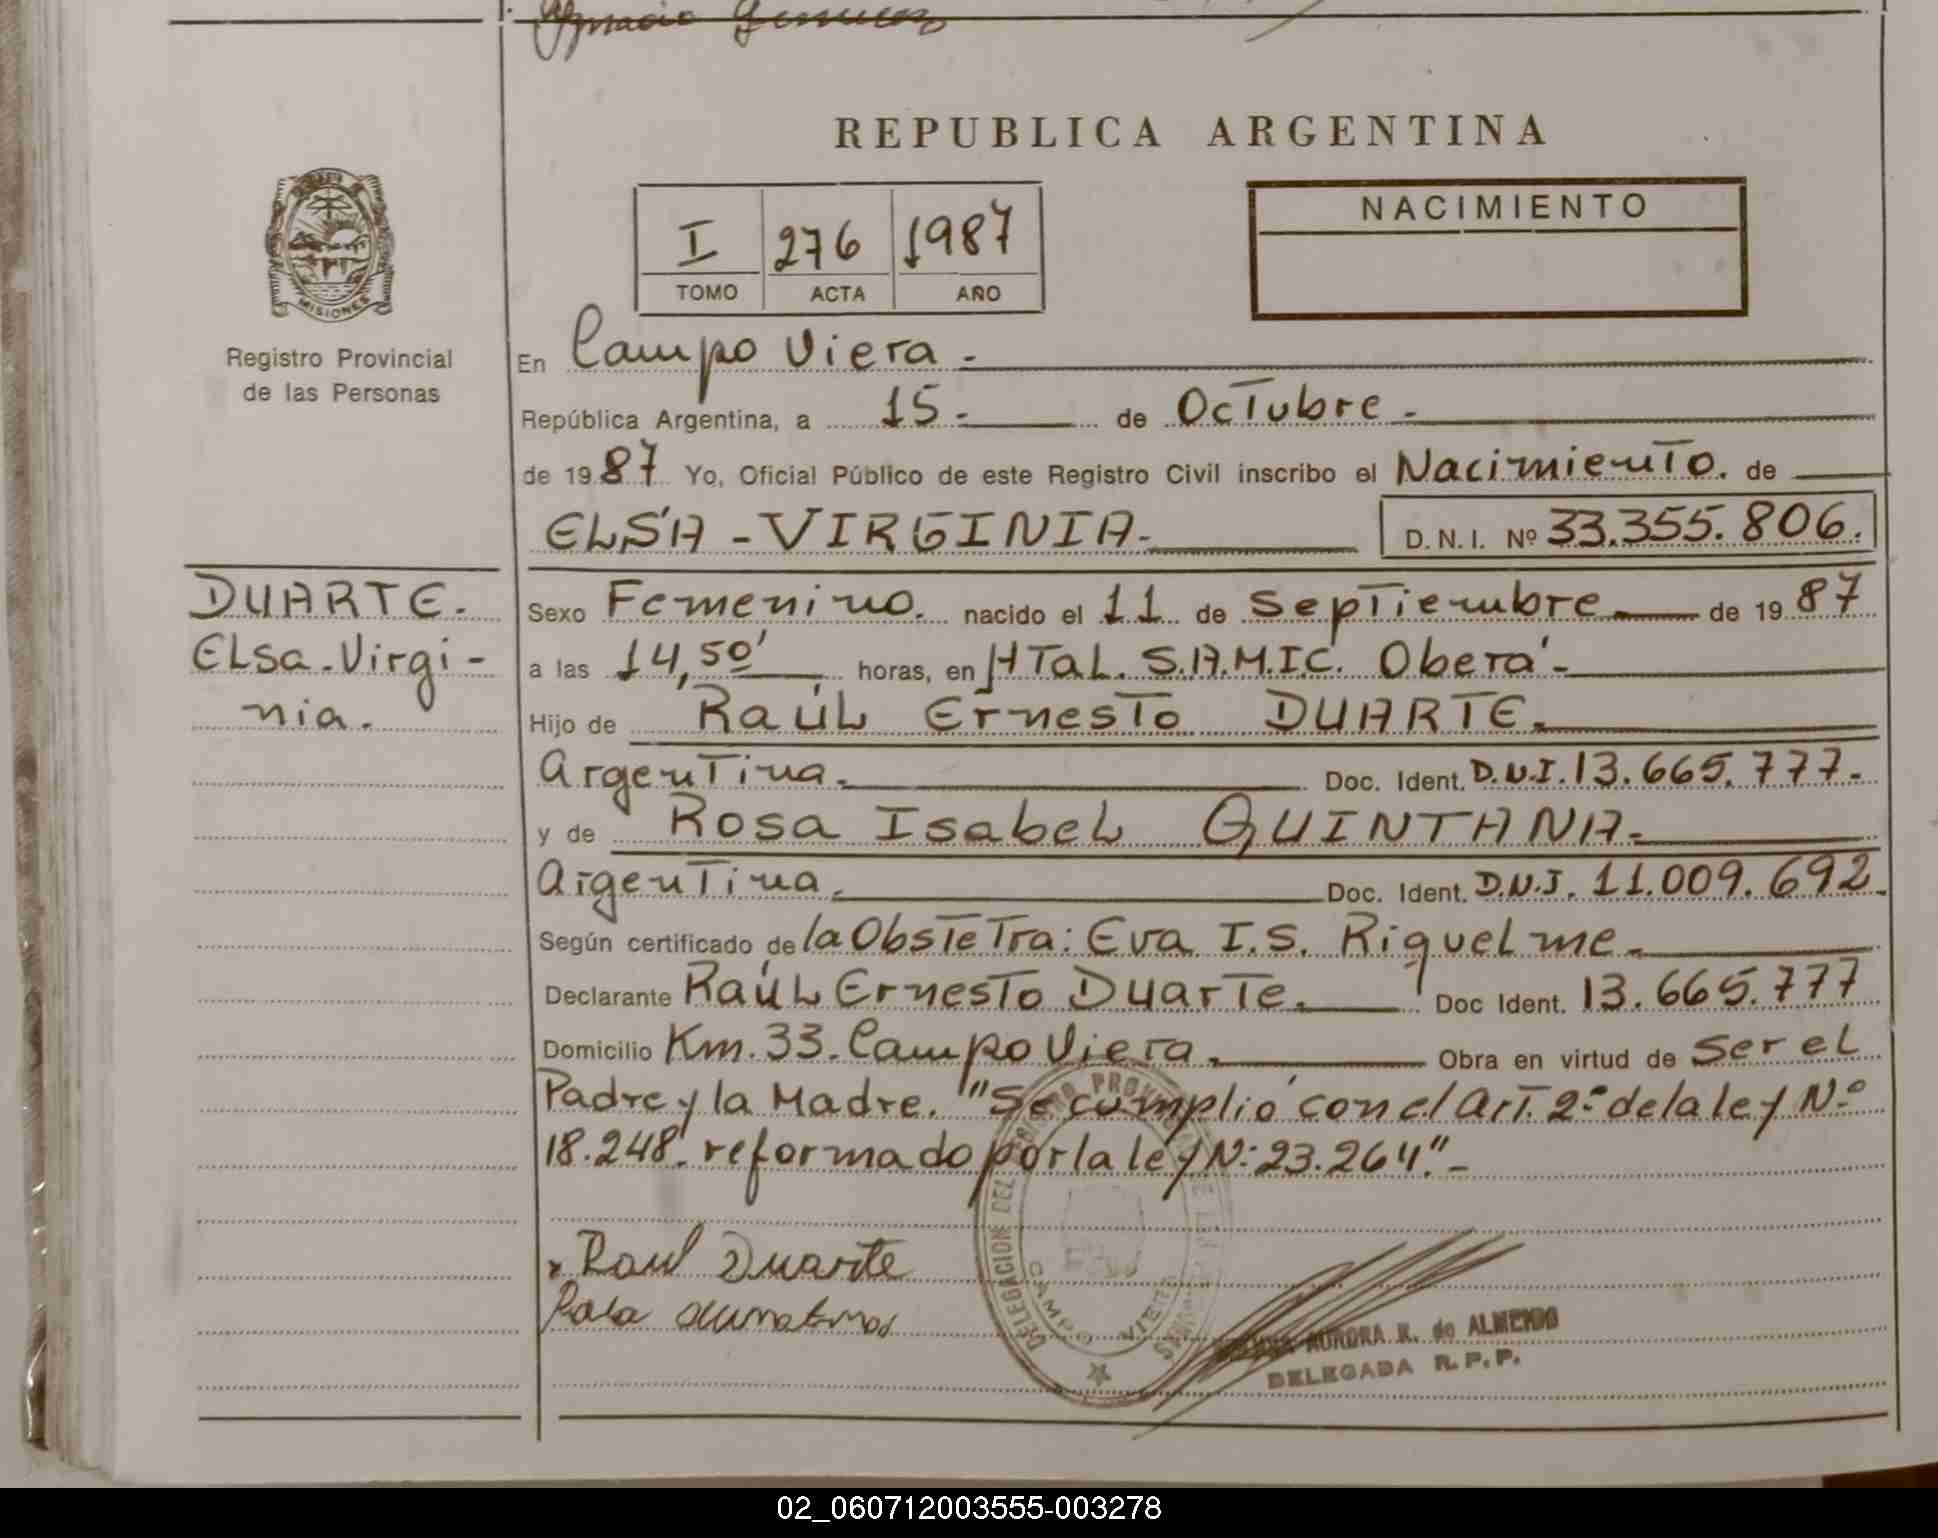 Ignacio
REPUBLICA ARGENTINA
MISIONES
Registro Provincial
de las Personas
I 276 1987
TOMO ACTA AÑO
NACIMIENTO
En Campo Viera.-
República Argentina, a 15.- de Octubre.-
de 1987 Yo, Oficial Público de este Registro Civil inscribo el Nacimiento. de
ELSA-VIRGINIA.- D.N.I. Nº 33.355.806.
DUARTE.
Elsa-Virgi-
nia.
Sexo Femenino. nacido el 11 de Septiembre de 1987
a las 14,50' horas, en HTal. S.A.M.I.C. Oberá.-
Hijo de Raúl Ernesto DUARTE.
Argentina. Doc. Ident. D.N.I. 13.665.777.-
y de Rosa Isabel QUINTANA.
Argentina. Doc. Ident. D.N.I. 11.009.692.
Según certificado de la Obstetra: Eva I.S. Riquelme.
Declarante Raúl Ernesto Duarte. Doc Ident. 13.665.777
Domicilio Km. 33. Campo Viera. Obra en virtud de Ser el
Padre y la Madre. "Se cumplió con el Art. 2º de la ley Nº
18.248. reformado por la ley Nº 23.264."-
Raul Duarte
DELEGACION DEL REGISTRO PROVINCIAL DE LAS PERSONAS
CAMPO VIERA
AURORA R. de ALMEIDO
DELEGADA R.P.P.
02_060712003555-003278